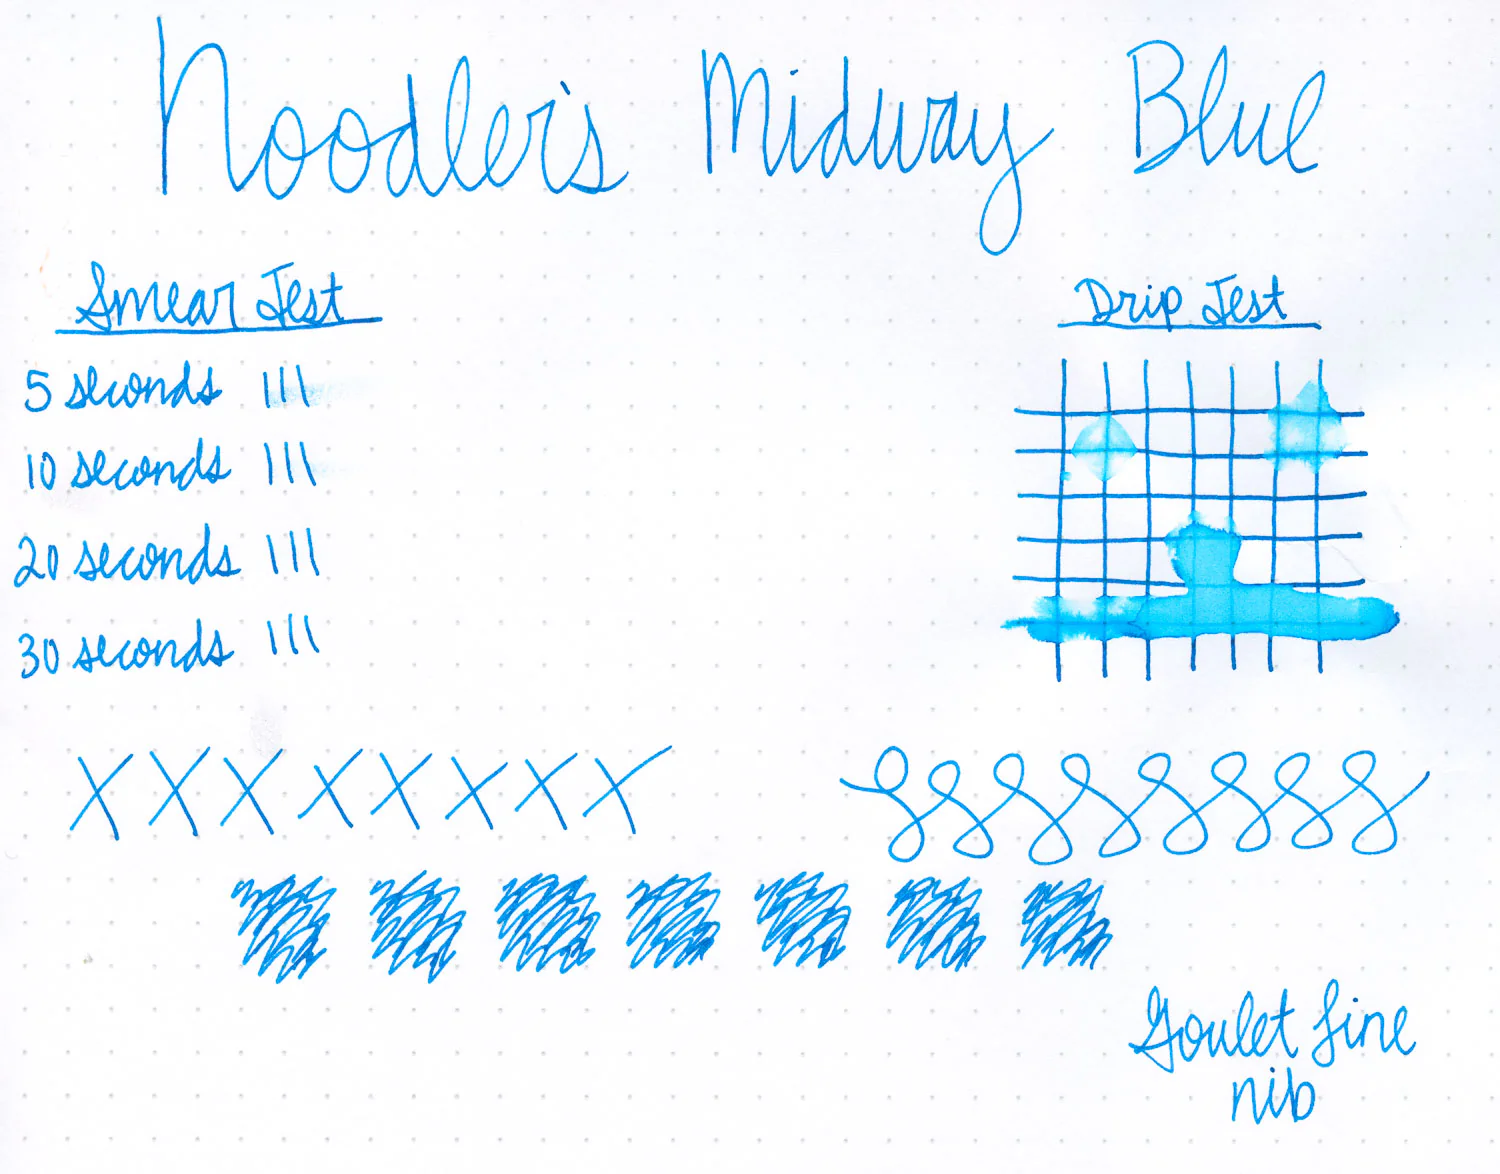 Noodler's Midway Blue
Smear Test
5 seconds |||
10 seconds |||
20 seconds |||
30 seconds |||
Drip Test
X X X X X X X X
Goulet fine
nib